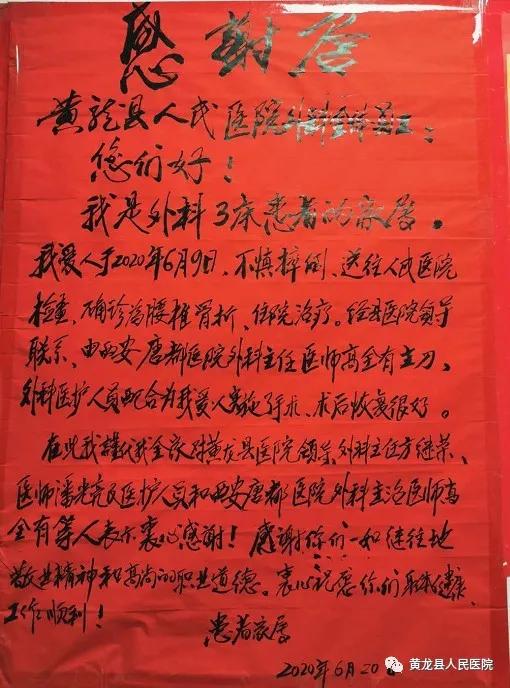 感谢信
黄龙县人民医院外科全体员工：
您们好！
我是外科3床患者的家属。
我爱人于2020年6月9日、不慎摔倒、送往人民医院
检查、确珍为腰椎骨折、住院治疗。经县医院领导
联系、由西安唐都医院外科主任医师高全有主刀、
外科医护人员配合为我爱人实施了手术、术后恢复很好。
在此我谨代我全家对黄龙县医院领导、外科主任方继荣、
医师潘光亮及医护人员和西安唐都医院外科主治医师高
全有等人表示衷心感谢！感谢你们一如继往地
敬业精神和高尚的职业道德。衷心祝愿你们身体健康、
工作顺利！
患者家属
2020年6月20
黄龙县人民医院